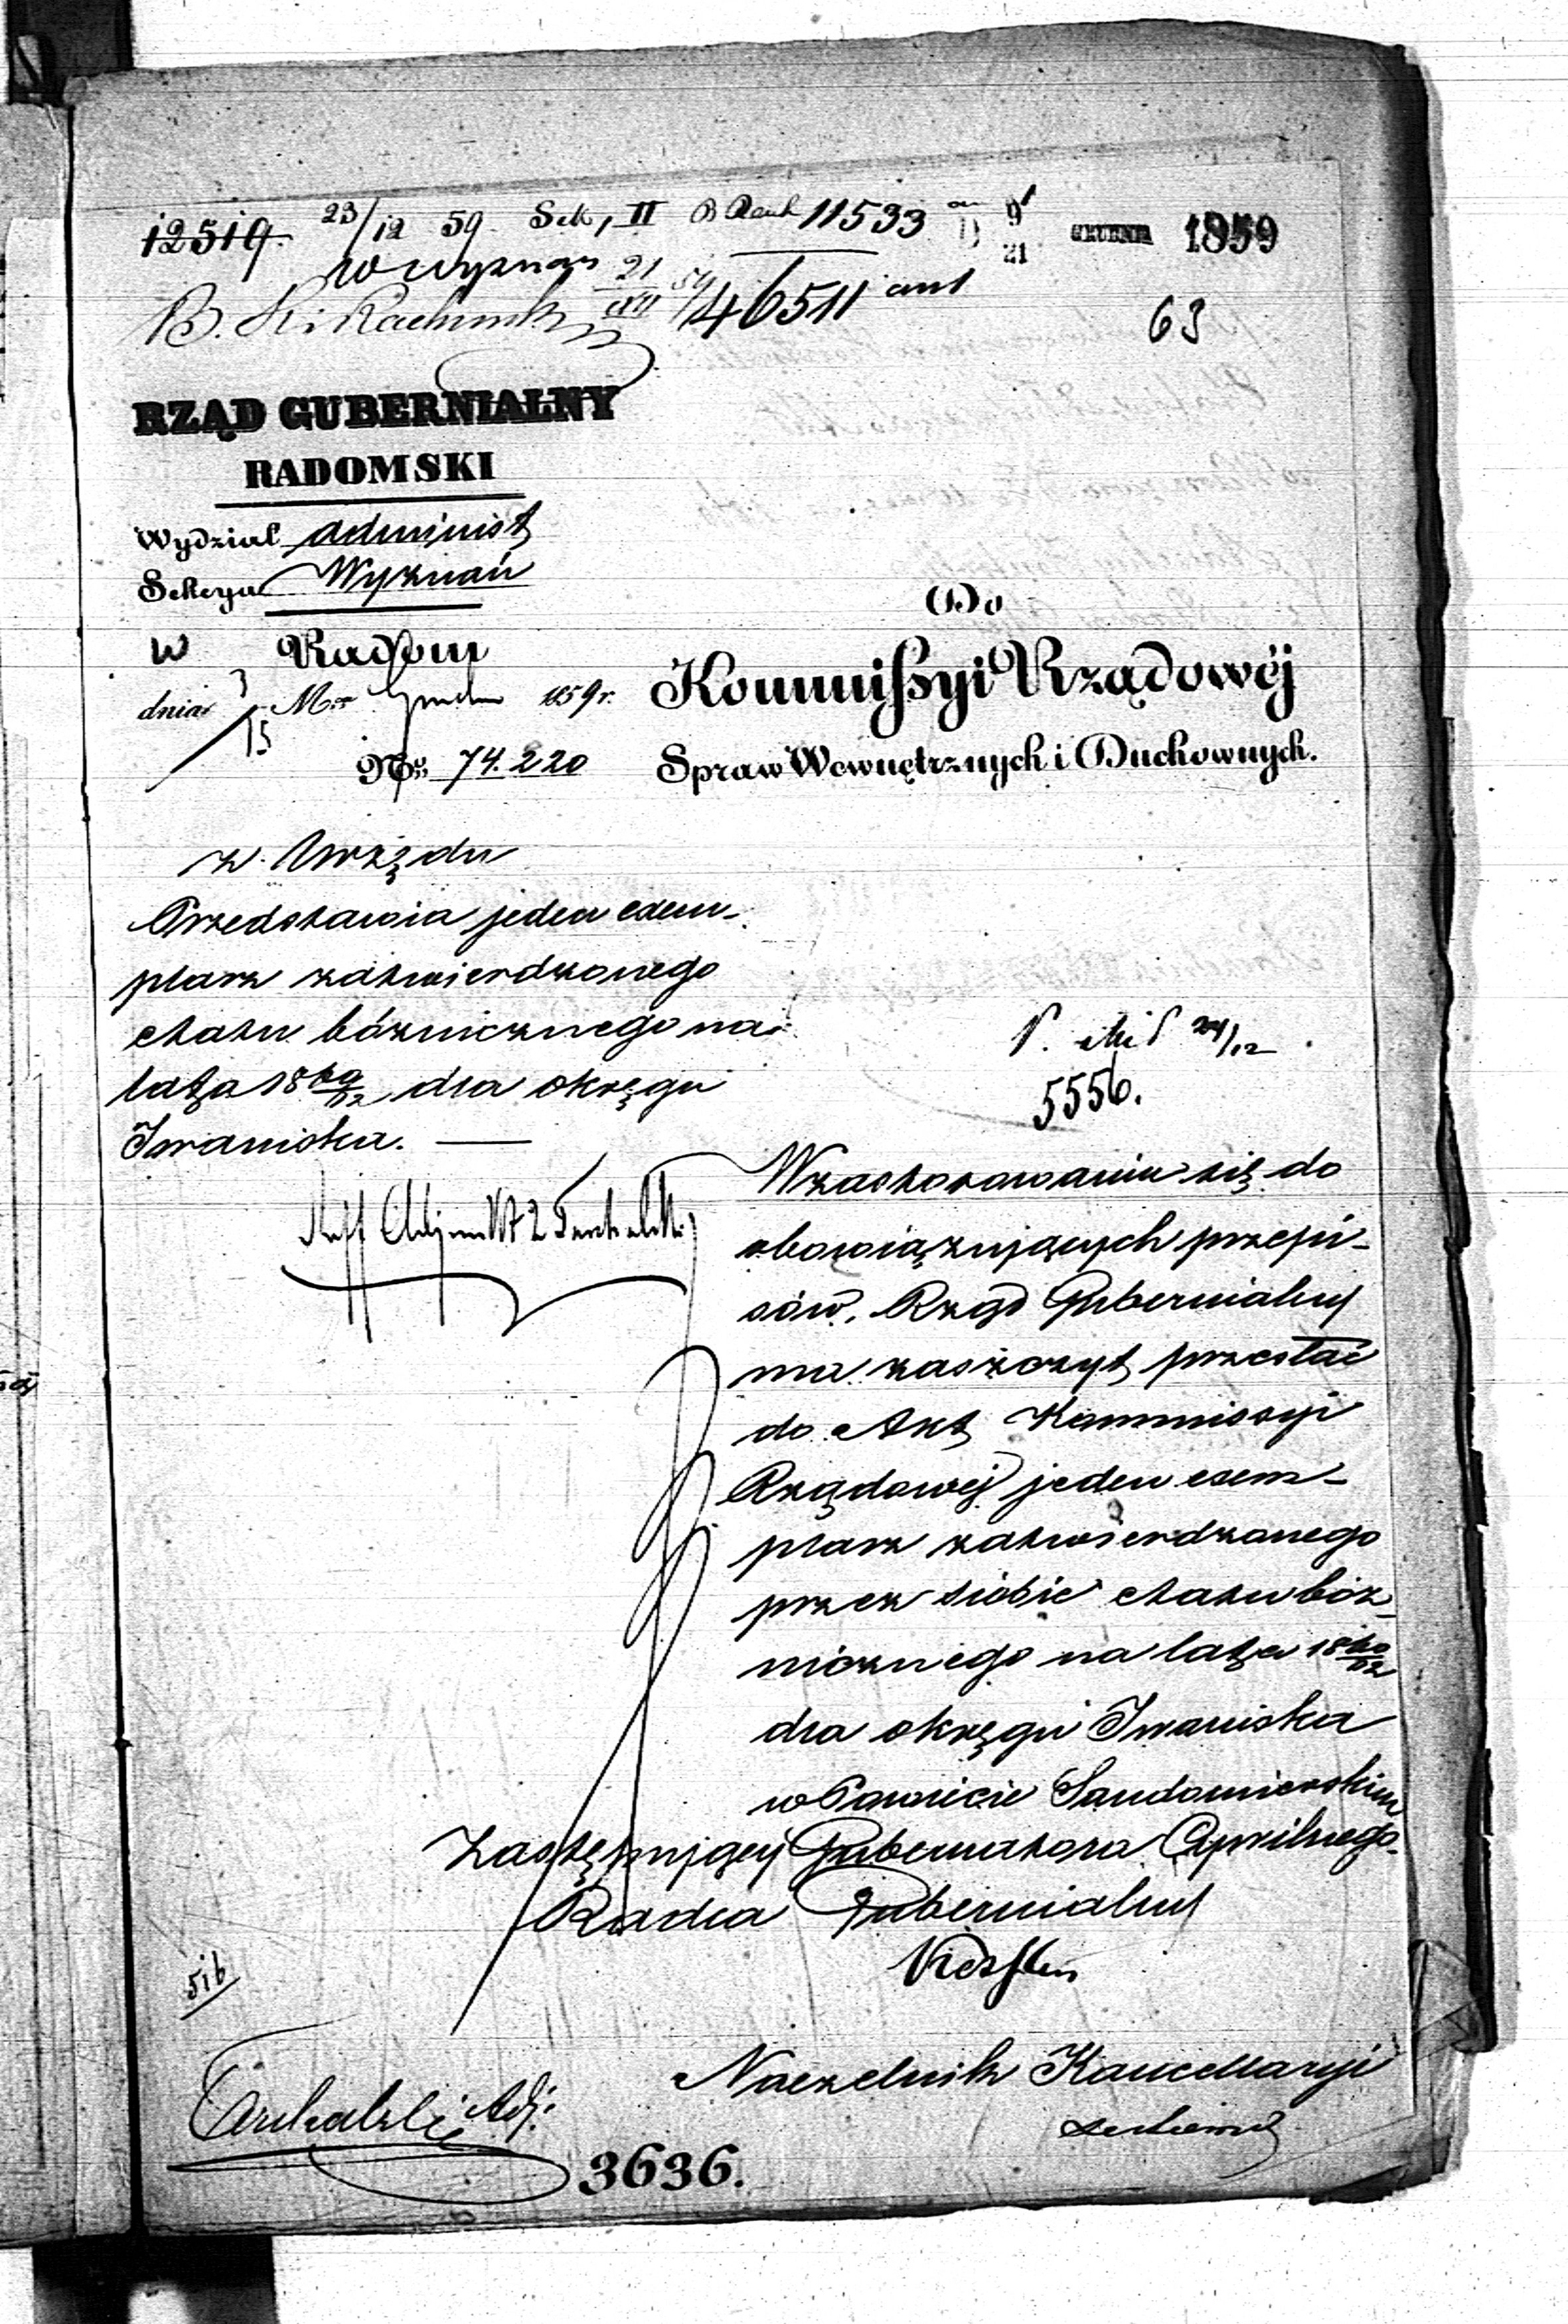 12519. 23/12 59. Sek, II 11533 D 9/21 GRUDNIA 1859
W wyznań 21/XII 59/46511
B.
63
RZĄD GUBERNIALNY
RADOMSKI
Wydział administ
Sekcya Wyznań
w Radom
dnia 3/15 Mca Grudn 1859 r.
Nr 74.220
Do
Kommissyi Rządowéj
Spraw Wewnętrznych i Duchownych.
z Urzędu
Przedstawia jeden exem-
plarz zatwierdzonego
etatu bóżnicznego na
lata 1860/62 dla okręgu
Iwaniska.
24/12
5556.
W zastosowaniu się do
obowiązujących przepi-
sów, Rząd Gubernialny
ma zaszczyt przesłać
do Akt Kommissyi
Rządowej jeden exem-
plarz zatwierdzonego
przez siebie etatu bóż-
nicznego na lata 1860/62
dla okręgu Iwaniska
w Powiecie Sandomierskim
Zastępujący Gubernatora Cywilnego
Radca Gubernialny
516
Naczelnik Kancellaryi
Adj:
3636.